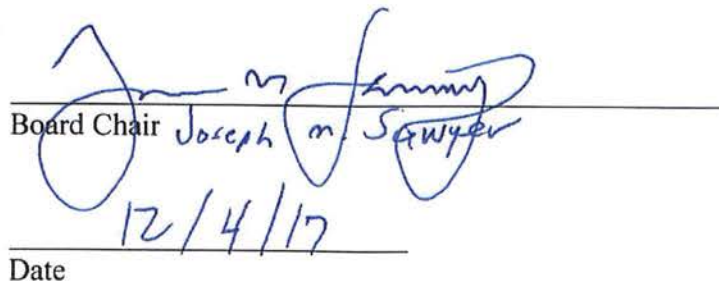 Board Chair Joseph m. Sawyer
12/4/17
Date